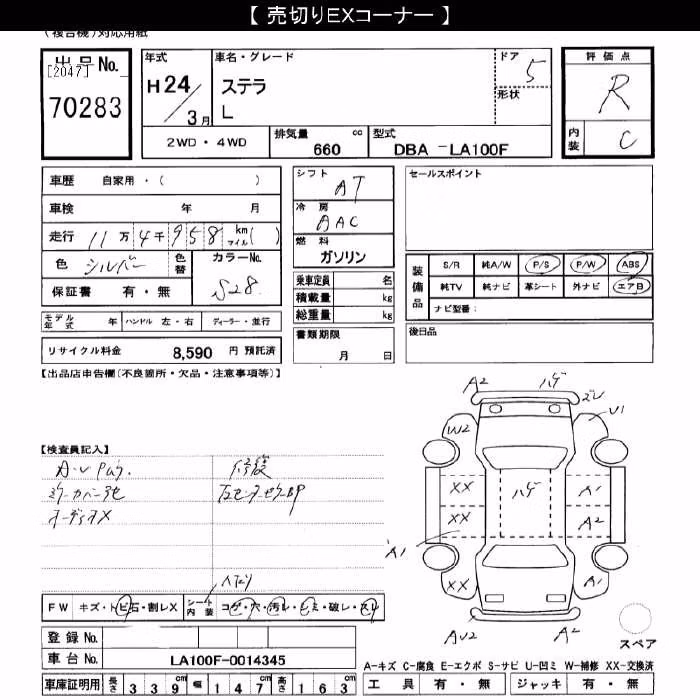 【 売切りEXコーナー 】
(複合機)対応用紙
出品No.
[2047]
70283
年式
H24/3月
車名・グレード
ステラ
L
ドア
5
形状
評価点
R
内装
C
2WD・4WD
排気量 cc
660
型式
DBA -LA100F
車歴 自家用・( )
車検 年 月
走行 11万4千958 km マイル( )
色 シルバー 色替 カラーNo.
S28
保証書 有・無
シフト
AT
冷房
AAC
燃料
ガソリン
乗車定員 名
積載量 kg
総重量 kg
書類期限
月 日
セールスポイント
装備品 S/R 純A/W P/S P/W ABS
純TV 純ナビ 革シート 外ナビ エアB
ナビ型番:
後日品
モデル年式 年 ハンドル 左・右 ディーラー・並行
リサイクル料金 8,590 円 預託済
【出品店申告欄(不良箇所・欠品・注意事項等)】
【検査員記入】
修復
オーディオX
A2 ハゲ
U1
W2
XX ハゲ A1
XX A2
A1
XX A1
AU2 A2
スペア
FW キズ・トビ石・割レX シート内装 コゲ・穴・汚レ・シミ・破レ・スレ
登録 No.
車台 No. LA100F-0014345
車庫証明用 長さ 339cm 幅 147cm 高さ 163cm
A-キズ C-腐食 E-エクボ S-サビ U-凹ミ W-補修 XX-交換済
工具 有・無 ジャッキ 有・無